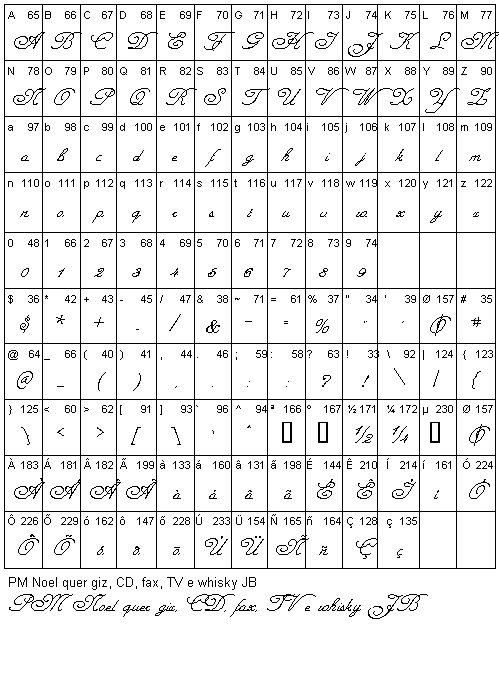 A 65 B 66 C 67 D 68 E 69 F 70 G 71 H 72 I 73 J 74 K 75 L 76 M 77
A B C D E F G H I J K L M
N 78 O 79 P 80 Q 81 R 82 S 83 T 84 U 85 V 86 W 87 X 88 Y 89 Z 90
N O P Q R S T U V W X Y Z
a 97 b 98 c 99 d 100 e 101 f 102 g 103 h 104 i 105 j 106 k 107 l 108 m 109
a b c d e f g h i j k l m
n 110 o 111 p 112 q 113 r 114 s 115 t 116 u 117 v 118 w 119 x 120 y 121 z 122
n o p q r s t u v w x y z
0 48 1 66 2 67 3 68 4 69 5 70 6 71 7 72 8 73 9 74
0 1 2 3 4 5 6 7 8 9
$ 36 * 42 + 43 - 45 / 47 & 38 ~ 71 = 61 % 37 " 34 ' 39 Ø 157 # 35
$ * + - / & ~ = % " ' Ø #
@ 64 _ 66 ( 40 ) 41 , 44 . 46 ; 59 : 58 ? 63 ! 33 \ 92 | 124 { 123
@ _ ( ) , . ; : ? ! \ | {
} 125 < 60 > 62 [ 91 ] 93 ` 96 ^ 94 ª 166 º 167 ½ 171 ¼ 172 µ 230 Ø 157
} < > [ ] ` ^ ½ ¼ Ø
À 183 Á 181 Â 182 Ã 199 à 133 á 160 â 131 ã 198 É 144 Ê 210 Í 214 í 161 Ó 224
À Á Â Ã à á â ã É Ê Í í Ó
Ô 226 Õ 229 ó 162 ô 147 õ 228 Ú 233 Ü 154 Ñ 165 ñ 164 Ç 128 ç 135
Ô Õ ó ô õ Ú Ü Ñ ñ Ç ç
PM Noel quer giz, CD, fax, TV e whisky JB
PM Noel quer giz, CD, fax, TV e whisky JB